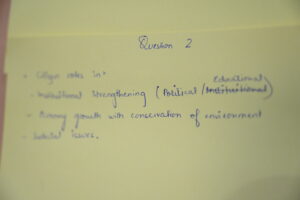 Question 2
Educational
- roles in
- Institutional Strengthening (Political/Institutional)
- growth with conservation of environment
- issues.